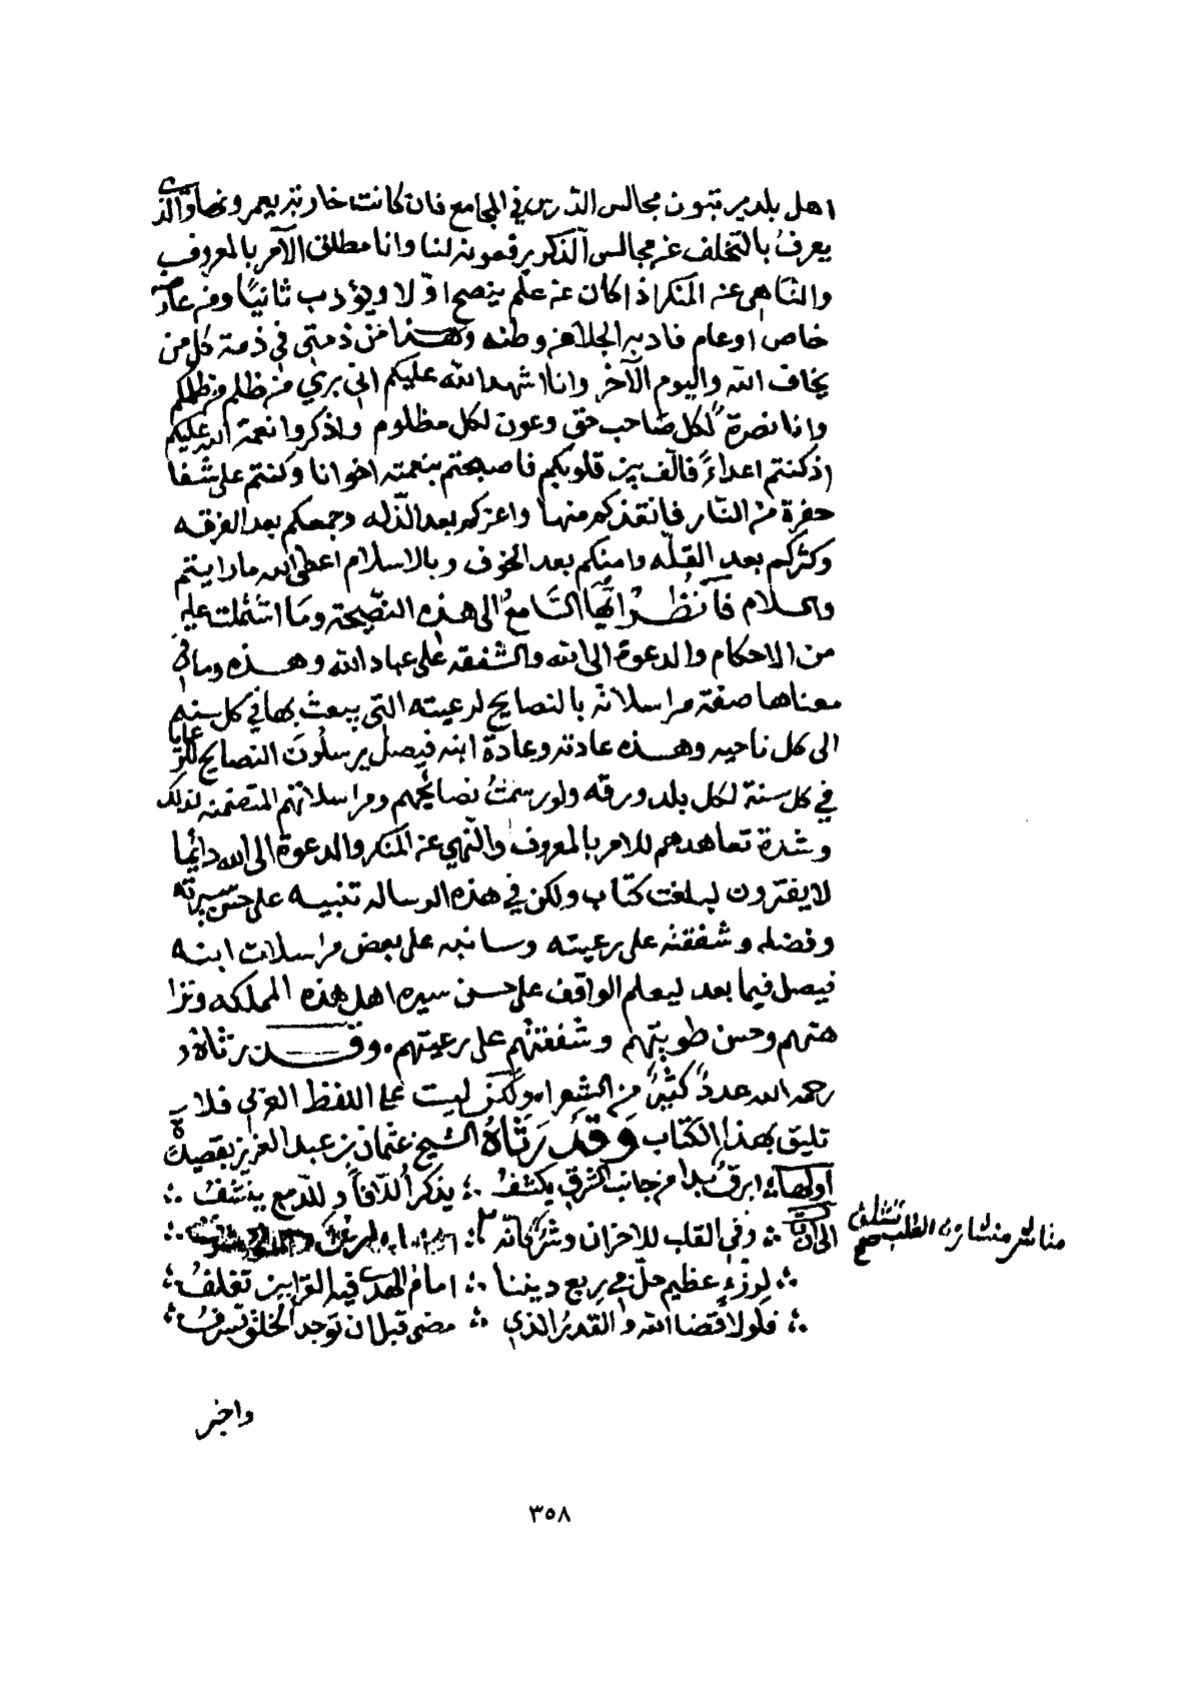 اهل بلد يرتبون مجالس التدريس في المجامع فان كانت خاربة يعمرونها والذي
يعرف بالتخلف عن مجالس الذكر يرفعونه لنا وانا مطلق الآمر بالمعروف
والناهي عن المنكر اذا كان عن علم ينصح اولا ويؤدب ثانيا ومن عارض
خاص او عام فادبه الجلا عن وطنه وهذا من ذمتي في ذمة كل من
يخاف الله واليوم الآخر وانا اشهد الله عليكم اني بري من ظلم من ظلمكم
وانا نصرة لكل صاحب حق وعون لكل مظلوم واذكروا نعمة الله عليكم
اذ كنتم اعداءً فالف بين قلوبكم فاصبحتم بنعمته اخوانا وكنتم على شفا
حفرة من النار فانقذكم منها واعزكم بعد الذله وجمعكم بعد الفرقه
وكثركم بعد القله وامنكم بعد الخوف وبالاسلام اعطاكم الله ما رايتم
والسلام فآنظُر ايُّها السَّامعُ الى هذه النصيحة وما اشتملت عليه
من الاحكام والدعوة الى الله والشفقه على عباد الله وهذه وما في
معناها صفة مراسلاته بالنصايح لرعيته التي يبعث بها في كل سنه
الى كل ناحيه وهذه عادته وعادة ابنه فيصل يرسلون النصايح للرعايا
في كل سنة لكل بلد ورقه ولو رسمتُ نصائحهم ومراسلاتهم المتضمنه لذلك
وشدة تعاهدهم للامر بالمعروف والنهي عن المنكر والدعوة الى الله دائما
لا يفترون لبلغت كتاب ولكن في هذه الرساله تنبيه على حسن سيرته
وفضله وشفقته على رعيته وسانبه على بعض مراسلات ابنه
فيصل فيما بعد ليعلم الواقف على حسن سيره اهل هذه المملكه ونزا
هتهم وحسن طويتهم وشفقتهم على رعيتهم. وقد رثاة
رحمه الله عددٌ كثيرٌ من الشعراء ولكن ليست على اللفظ العربي فلا
تليق بهذا الكتاب وَقَد رَثاهُ الشيخ عثمان بن عبد العزيز بقصيدة
اولها ابرقٌ بدا من جانب الشرق يكشفُ ؞ يذكر أُلّافاً وللدمع ينشفُ ؞
الى ان قال ؞ وفي القلب للاحزان وشركائه ؞
منا لم منشاره القلب تتلف صح
؞ لرزءٍ عظيم حلّ في ربع ديننا ؞ امام الهدى فيه القرابين تغلفُ ؞
؞ فلولا قضا الله والقدر الذي ؞ مضى قبل ان توجد الخلق تسرفُ ؞
واخبر
٣٥٨